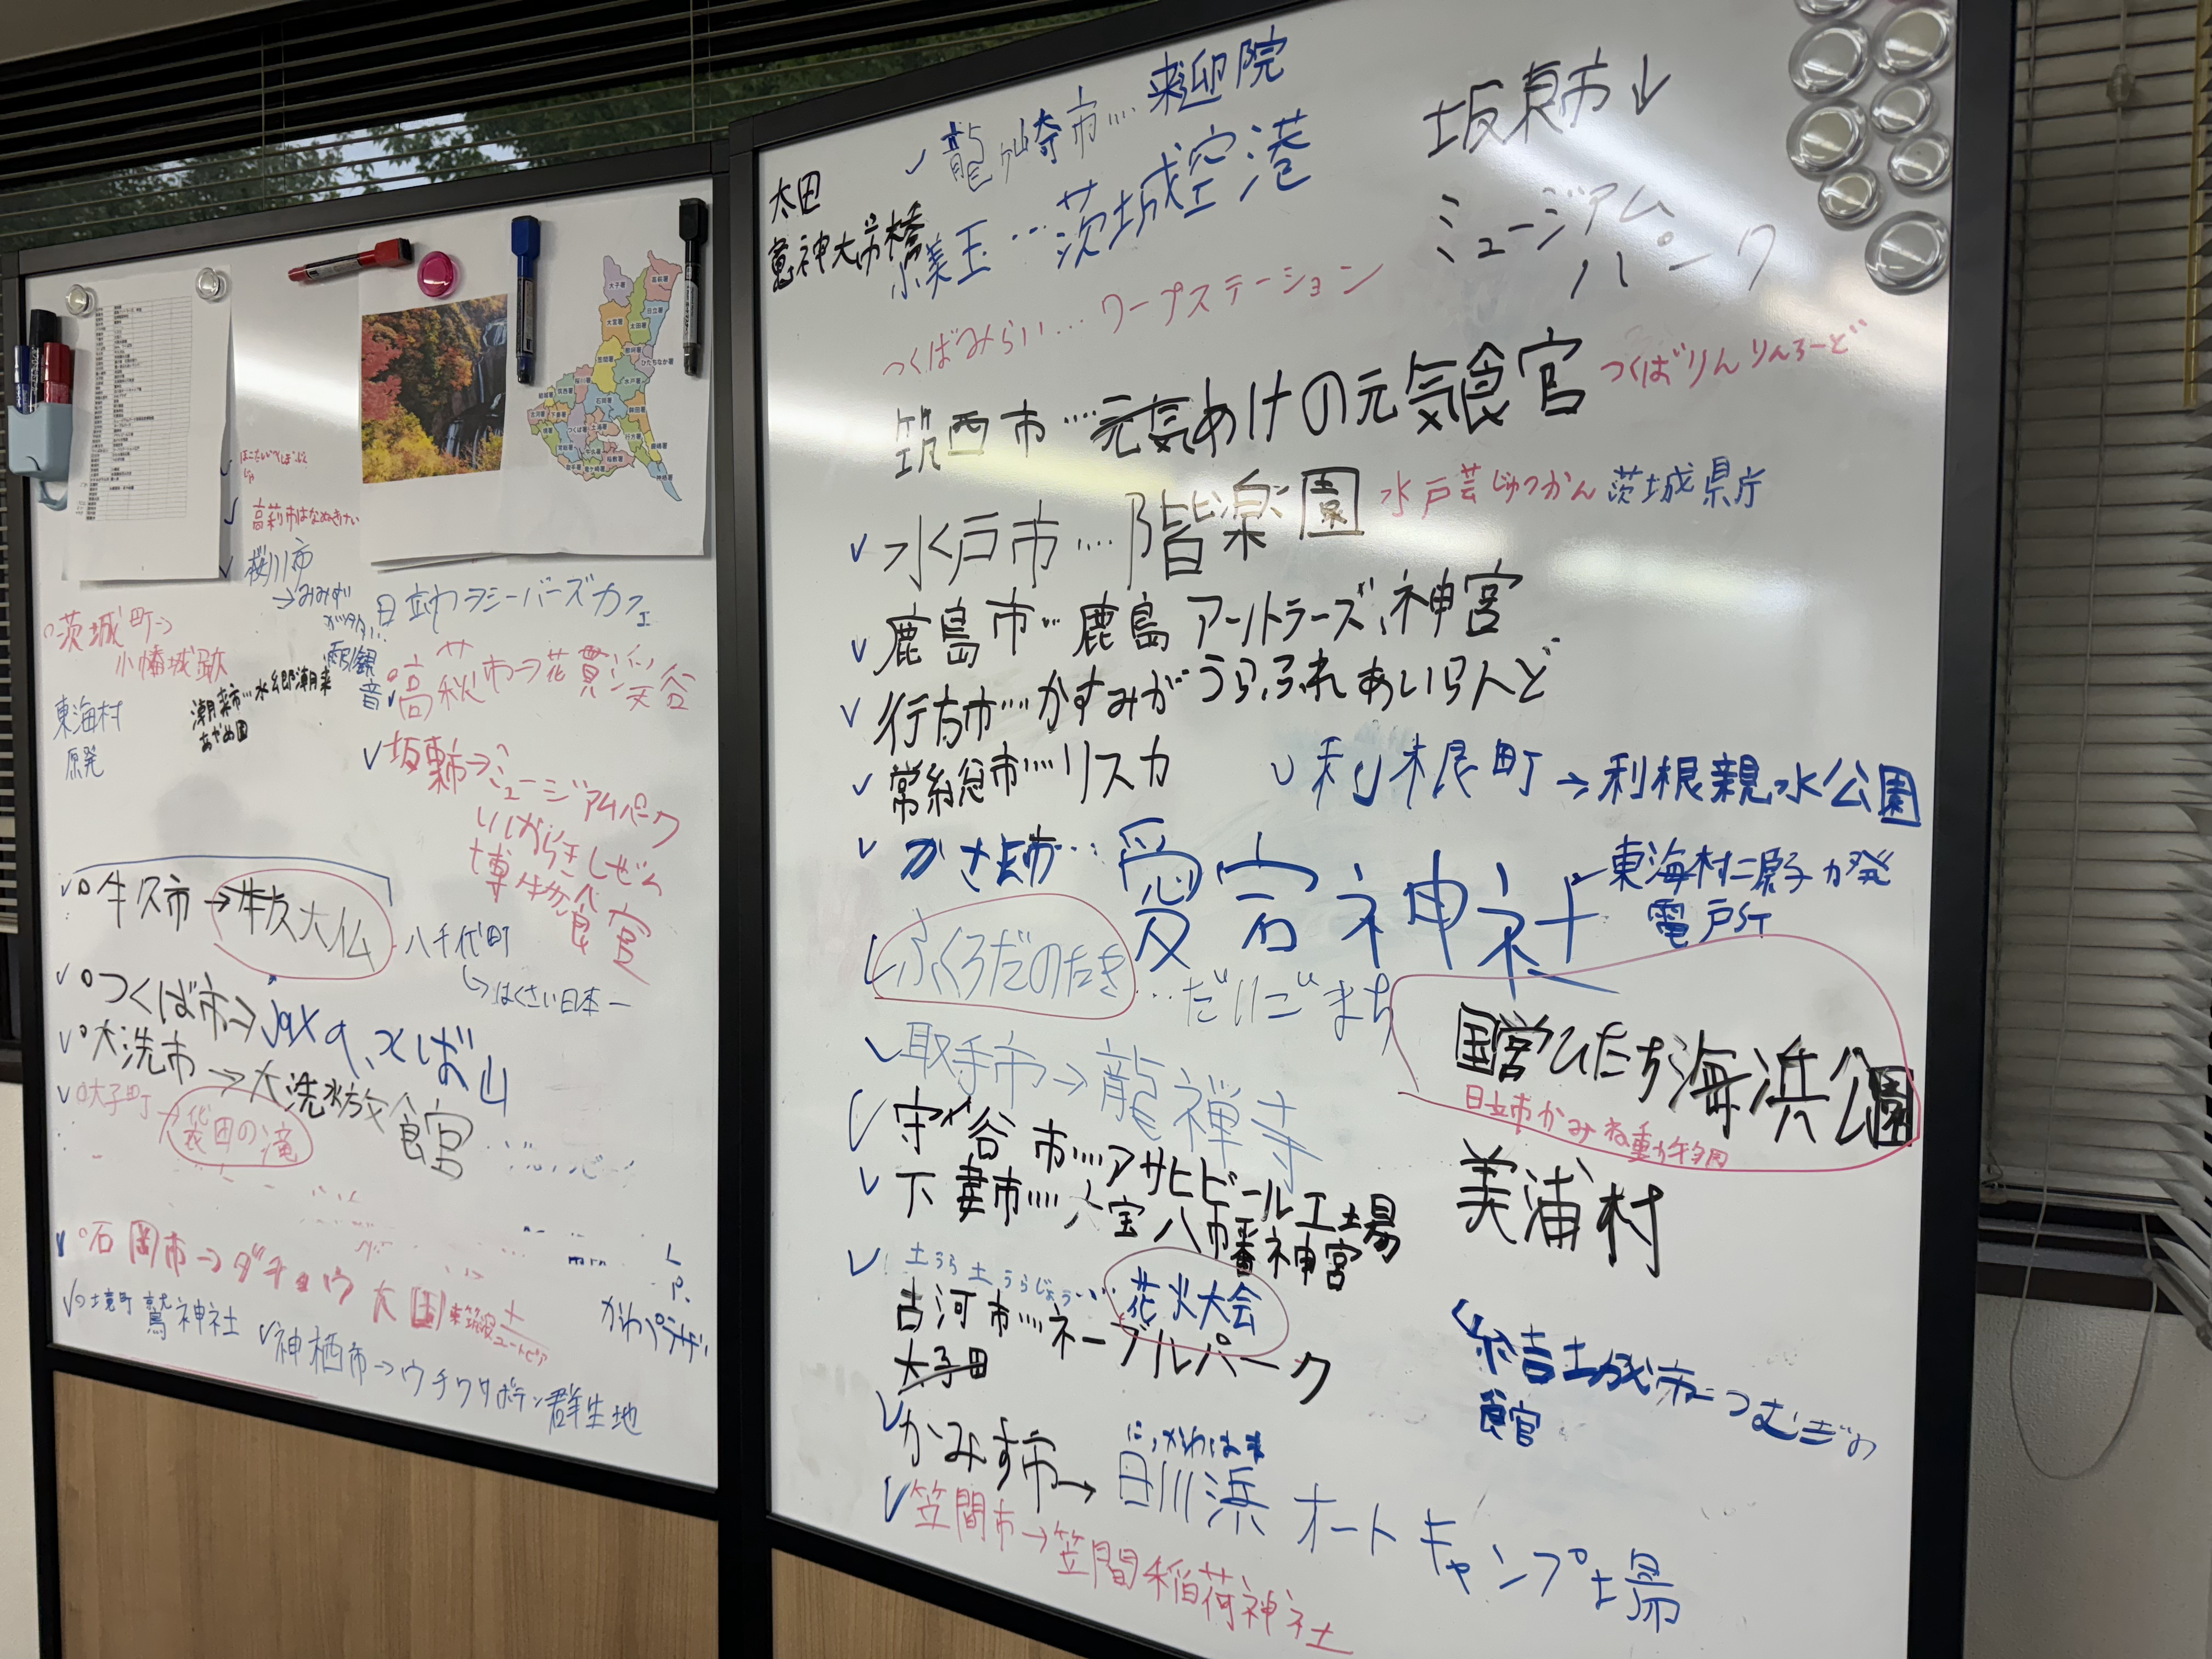 桜川市
→みみずが
日立市→シーバーズカフェ
雨引観音
茨城町→
小幡城跡
高萩市→花貫渓谷
東海村
原発
潮来市…水郷潮来
あやめ園
坂東市→ミュージアムパーク
いばらきしぜん
博物館
牛久市→牛久大仏
八千代町
↳はくさい日本一
つくば市→Jaxa、つくば山
大洗市→大洗水族館
大子町
袋田の滝
石岡市→ダチョウ王国
かわプラザ
境町 鷲神社
神栖市→ウチワサボテン群生地
龍ヶ崎市…来迎院
太田
竜神大吊橋
小美玉…茨城空港
つくばみらい…ワープステーション
坂東市↓
ミュージアム
パーク
筑西市…元気あけの元気館
つくばりんりんろーど
水戸市…階楽園
水戸芸じゅつかん 茨城県庁
鹿島市…鹿島アールトラーズ、神宮
行方市…かすみがうらふれあいらんど
常総市…リスカ
利根町→利根親水公園
かさま市…愛宕神社
東海村二原子力発
電所
ふくろだのたき…だいごまち
国営ひたち海浜公園
日立市かみね動物園
取手市→龍禅寺
守谷市…アサヒビール工場
下妻市…大宝八幡神宮
美浦村
土うら土うらじょう…花火大会
古河市…ネーブルパーク
結城市→つむぎの
館
かみす市→日川浜オートキャンプ場
にっかわはま
笠間市→笠間稲荷神社